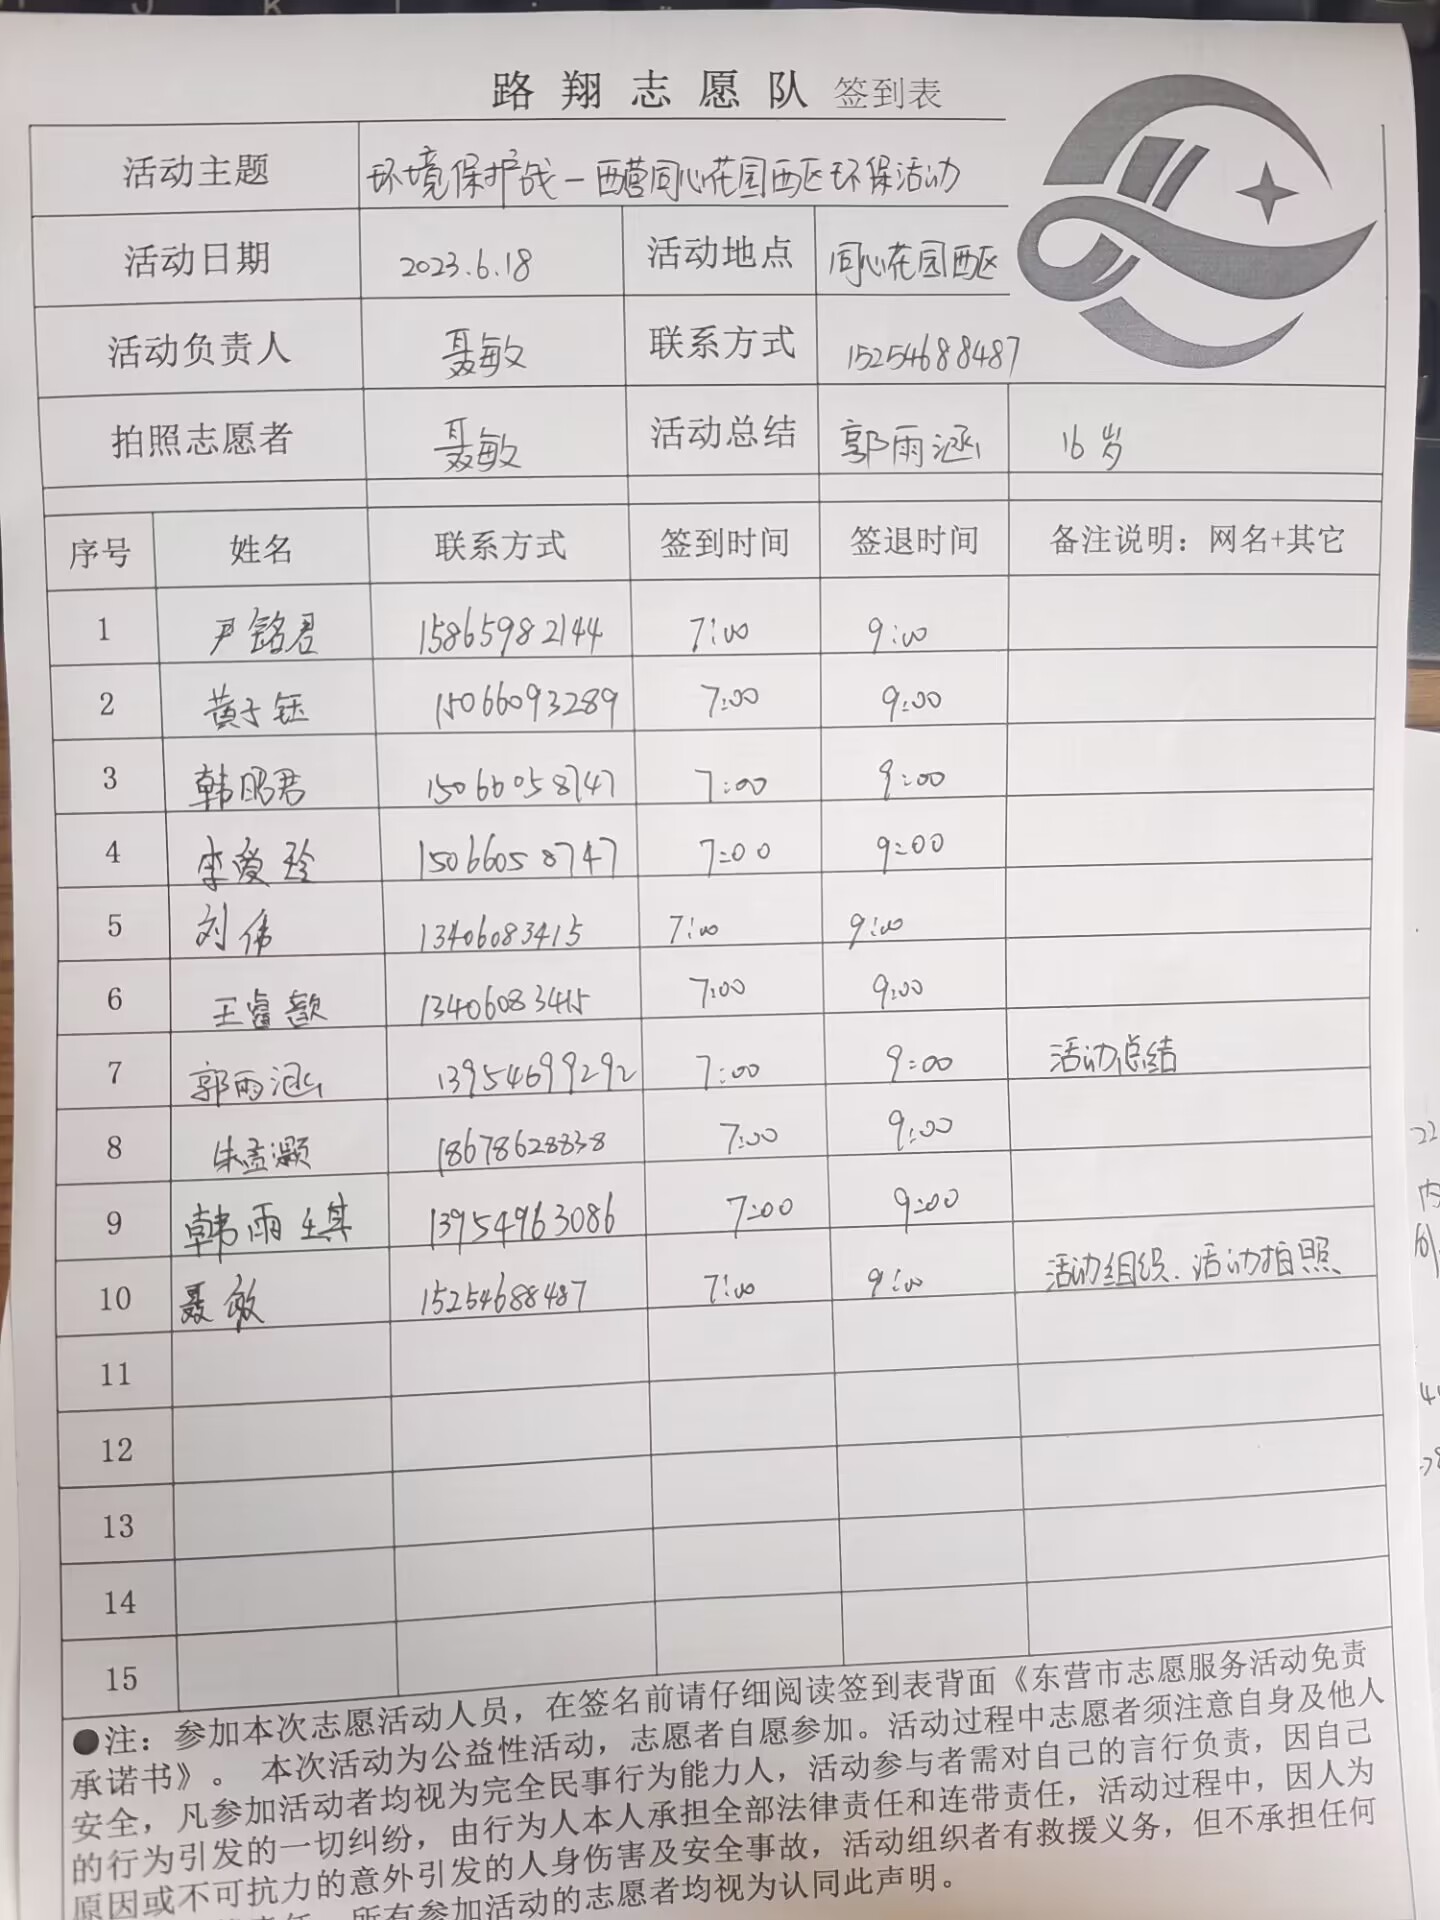 路翔志愿队 签到表
活动主题 环境保护战—西营同心花园西区环保活动
活动日期 2023.6.18 活动地点 同心花园西区
活动负责人 聂敏 联系方式 15254688487
拍照志愿者 聂敏 活动总结 郭雨涵 16岁
序号 姓名 联系方式 签到时间 签退时间 备注说明：网名+其它
1 尹铭君 15865982144 7:00 9:00
2 黄子钰 15066093289 7:00 9:00
3 韩昭君 15066058747 7:00 9:00
4 李爱玲 15066058747 7:00 9:00
5 刘伟 13406083415 7:00 9:00
6 王睿歆 13406083415 7:00 9:00
7 郭雨涵 13954699292 7:00 9:00 活动总结
8 朱孟灏 18678628838 7:00 9:00
9 韩雨琪 13954963086 7:00 9:00
10 聂敏 15254688487 7:00 9:00 活动组织、活动拍照
11
12
13
14
15
●注：参加本次志愿活动人员，在签名前请仔细阅读签到表背面《东营市志愿服务活动免责
承诺书》。 本次活动为公益性活动，志愿者自愿参加。活动过程中志愿者须注意自身及他人
安全，凡参加活动者均视为完全民事行为能力人，活动参与者需对自己的言行负责，因自己
的行为引发的一切纠纷，由行为人本人承担全部法律责任和连带责任，活动过程中，因人为
原因或不可抗力的意外引发的人身伤害及安全事故，活动组织者有救援义务，但不承担任何
所有参加活动的志愿者均视为认同此声明。